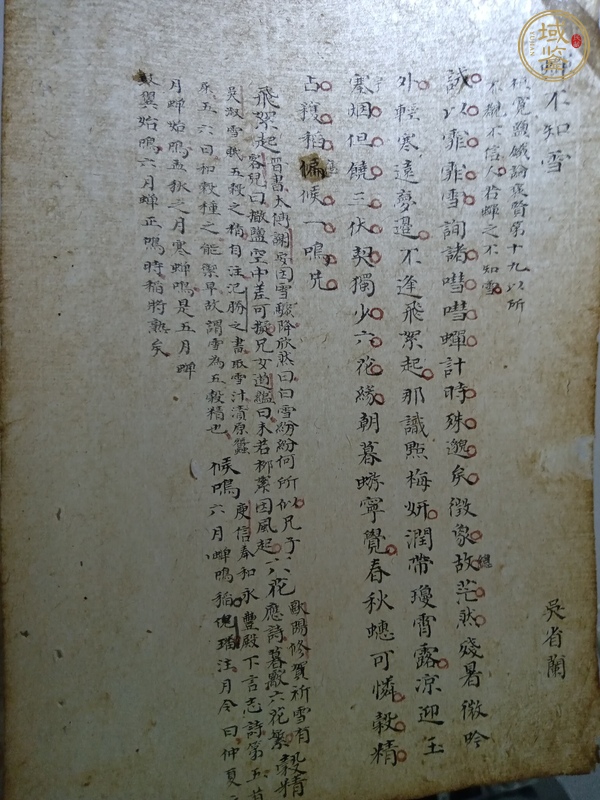 不知雪
吳省蘭
桓寬鹽鐵論襃賢第十九以所
不覩不信人若蟬之不知雪
試以霏霏雪詢諸嘒嘒蟬計時殊邈矣徵象故茫然殘暑微吟
總
外輕寒遠夢邊不逢飛絮起那識點梅妍潤帶瓊霄露涼迎玉
塞烟但饒三伏契獨少六花緣朝暮蜉寧覺春秋蟪可憐穀精
占稻偏候一鳴先
飛絮起
晉書太傅謝安因雪驟降欣然曰白雪紛紛何所似兄子
兒曰撒鹽空中差可擬兄女道韞曰未若柳絮因風起
六花
歐陽修賀祈雪有
應詩暮六花繁
穀精
吳淑雪賦五穀之精自注氾勝之書取雪汁漬原蠶
屎五六日和穀種之能禦旱故謂雪為五穀精也
候鳴
庾信奉和永豐殿下言志詩第五首
六月蟬鳴稻倪璠注月令曰仲夏之
月蟬始鳴孟秋之月寒蟬鳴是五月蟬
翼始鳴六月蟬正鳴時稻將熟矣